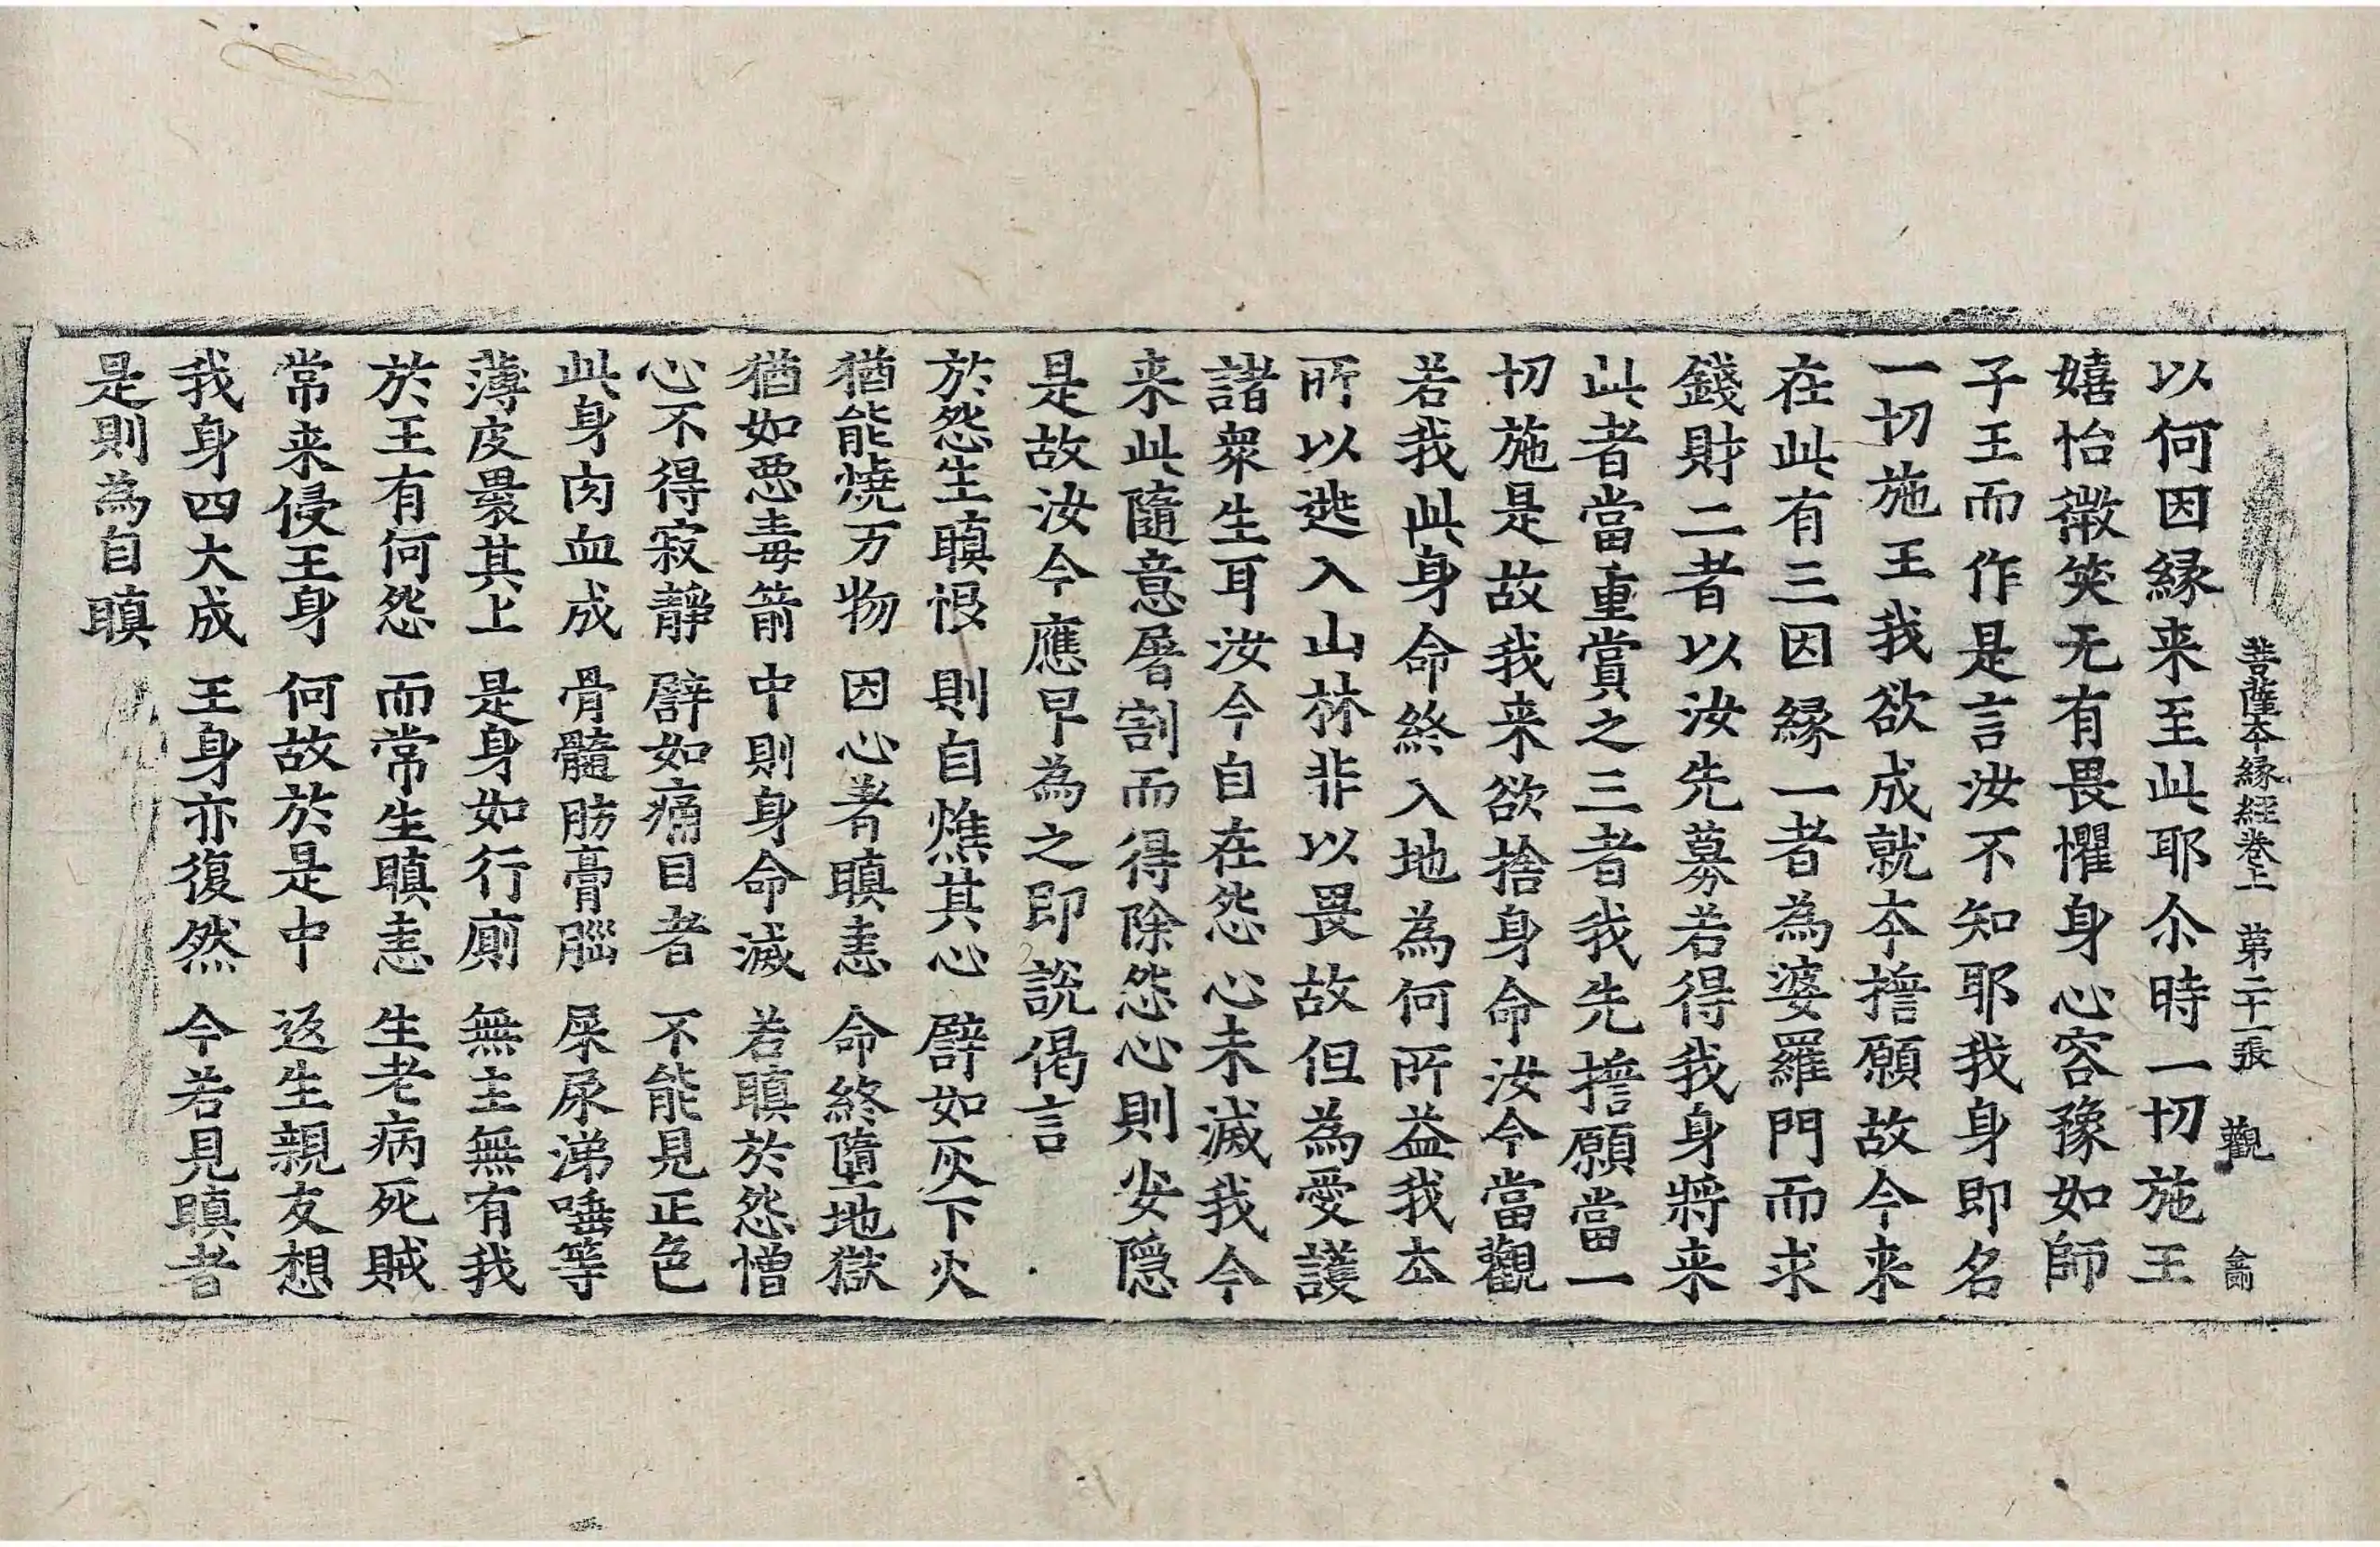 菩薩本縁經卷上 第二十一張 觀
以何因緣来至此耶尒時一切施王
嬉怡微笑无有畏懼身心容豫如師
子王而作是言汝不知耶我身即名
一切施王我欲成就本擔願故今来
在此有三因緣一者為婆羅門而求
錢財二者以汝先募若得我身將来
此者當重賞之三者我先擔願當一
切施是故我来欲捨身命汝今當觀
若我此身命終入地為何所益我本
所以逃入山林非以畏故但為愛護
諸衆生耳汝今自在怨心未滅我今
来此隨意屠割而得除怨心則安隱
是故汝今應早為之即說偈言
於怨生瞋恨 則自燋其心 譬如灰下火
猶能燒万物 因心者瞋恚 命終墮地獄
猶如惡毒箭 中則身命滅 若瞋於怨憎
心不得寂靜 譬如痛目者 不能見正色
此身肉血成 骨髓肪膏腦 屎尿涕唾等
薄皮裹其上 是身如行廁 無主無有我
於王有何怨 而常生瞋恚 生老病死賊
常来侵王身 何故於是中 返生親友想
我身四大成 王身亦復然 今若見瞋者
是則為自瞋